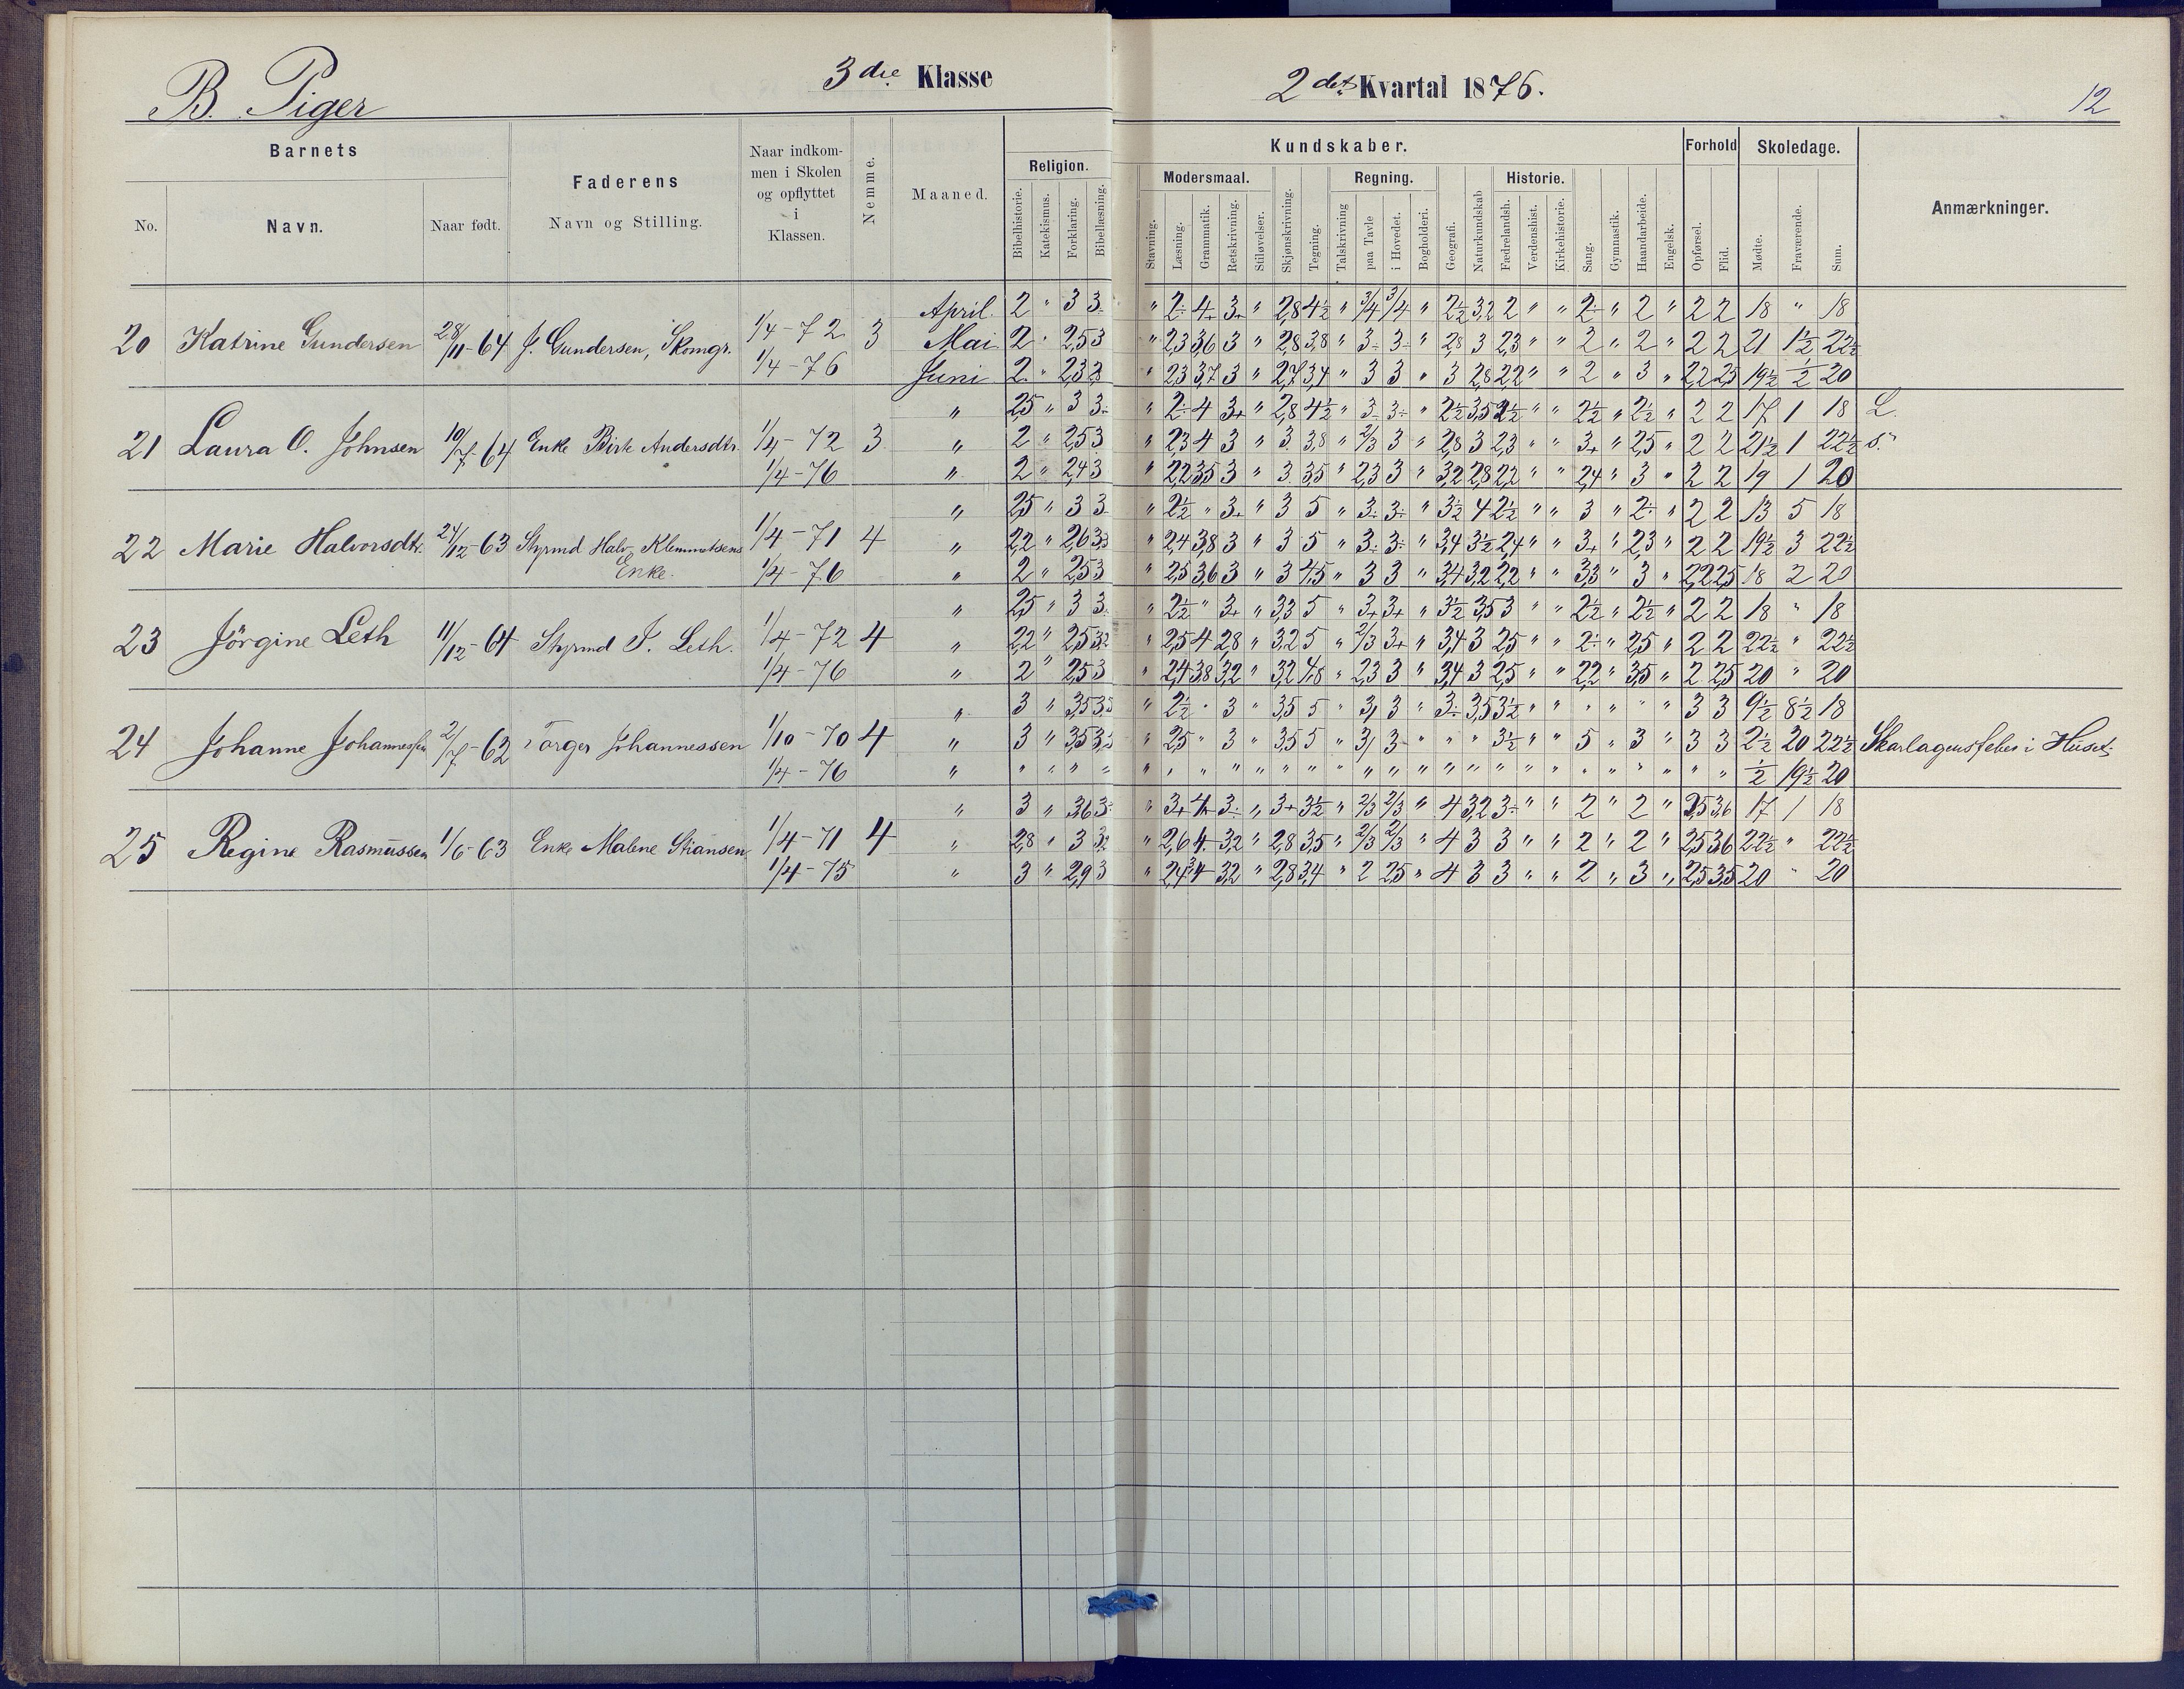 B. Piger
3die Klasse
2det Kvartal 1876.
12
Barnets
No.
Navn.
Naar født.
Faderens
Navn og Stilling.
Naar indkom-
men i Skolen
og opflyttet
i
Klassen.
Nemme.
Maaned.
Kundskaber.
Religion.
Bibelhistorie.
Katekismus.
Forklaring.
Bibellæsning.
Modersmaal.
Stavning.
Læsning.
Grammatik.
Retskrivning.
Stiløvelser.
Skjønskrivning.
Tegning.
Regning.
Talskrivning
paa Tavle
i Hovedet.
Bogholderi.
Geografi.
Naturkundskab
Historie.
Fædrelandsh.
Verdenshist.
Kirkehistorie.
Sang.
Gymnastik.
Haandarbeide.
Engelsk.
Forhold
Opførsel.
Flid.
Skoledage.
Mødte.
Fraværende.
Sum.
Anmærkninger.
20 Katrine Gundersen 28/11-64 J. Gundersen, Skomgr. 1/4-72 3
1/4-76
April 2 " 3 3 " 2÷ 4+ 3+ " 2,8 4½ " 3/4 3/4 " 2½ 3,2 2 " " 2÷ " 2 " 2 2 18 " 18
Mai 2 " 2,5 3 " 2,3 3,6 3 " 2,8 3,8 " 3÷ 3÷ " 2,8 3 2,3 " " 2 " 2 " 2 2 21 1½ 22½
Juni 2 " 2,3 3 " 2,3 3,7 3 " 2,7 3,4 " 3 3 " 3 2,8 2,2 " " 2 " 3 " 2,2 2,5 19½ ½ 20
21 Laura O. Johnsen 10/7-64 Enke Birte Andersdtr. 1/4-72 3
1/4-76
" 2,5 " 3 3÷ " 2÷ 4 3+ " 2,8 4½ " 3÷ 3÷ " 2½ 3,5 2½ " " 2½ " 2½ " 2 2 17 1 18 L.
" 2 " 2,5 3 " 2,3 4 3 " 3 3,8 " 2/3 3 " 2,8 3 2,3 " " 3+ " 2,5 " 2 2 21½ 1 22½ s.
" 2 " 2,4 3 " 2,2 3,5 3 " 3 3,5 " 2,3 3 " 3,2 2,8 2,2 " " 2,4 " 3 " 2 2 19 1 20
22 Marie Halvorsdtr. 24/12-63 Styrmd Halv. Klemmetsens Enke. 1/4-71 4
1/4-76
" 2,5 " 3 3 " 2½ " 3+ " 3 5 " 3÷ 3÷ " 3½ 4 2½ " " 3 " 2÷ " 2 2 13 5 18
" 2,2 " 2,6 3,3 " 2,4 3,8 3 " 3 5 " 3÷ 3÷ " 3,4 3½ 2,4 " " 3+ " 2,3 " 2 2 19½ 3 22½
" 2 " 2,5 3 " 2,5 3,6 3 " 3 4,5 " 3 3 " 3,4 3,2 2,2 " " 3,3 " 3 " 2,2 2,5 18 2 20
23 Jörgine Leth 11/12-64 Styrmd J. Leth. 1/4-72 4
1/4-76
" 2,5 " 3 3 " 2½ " 3+ " 3,3 5 " 3+ 3+ " 3½ 3,5 3 " " 2½ " 2½ " 2 2 18 " 18
" 2,2 " 2,5 3,2 " 2,5 4 2,8 " 3,2 5 " 2/3 3+ " 3,4 3 2,5 " " 2÷ " 2,5 " 2 2 22½ " 22½
" 2 " 2,5 3 " 2,4 3,8 3,2 " 3,2 4,8 " 2,3 3 " 3,4 3 2,5 " " 2,2 " 3,5 " 2 2,5 20 " 20
24 Johanne Johannessen 2/7-62 Torger Johannessen 1/10-70 4
1/4-76
" 3 " 3,5 3,5 " 2½ " 3 " 3,5 5 " 3 3 " 3÷ 3,5 3½ " " " " " " 3 3 9½ 8½ 18
" 3 " 3,5 3,5 " 2,5 " 3 " 3,5 5 " 3 3 " " " 3½ " " 5 " 3 " 3 3 2½ 20 22½ Skarlagensfeber i Huset
" " " " " " " " " " " " " " " " " " " " " " " " " " " " ½ 19½ 20
25 Regine Rasmussen 1/6-63 Enke Malene Stiansen 1/4-71 4
1/4-75
" 3 " 3,6 3÷ " 3+ 4+ 3÷ " 3+ 3½ " 2/3 2/3 " 4 3,2 3÷ " " 2 " 2 " 2,5 3,6 17 1 18
" 2,8 " 3 3,2 " 2,6 4 3,2 " 2,8 3,5 " 2/3 2/3 " 4 3 3 " " 2 " 2 " 2,5 3,6 22½ " 22½
" 3 " 2,9 3 " 2,4 3,4 3,2 " 2,8 3,4 " 2 2,5 " 4 3 3 " " 2 " 3 " 2,5 3,5 20 " 20